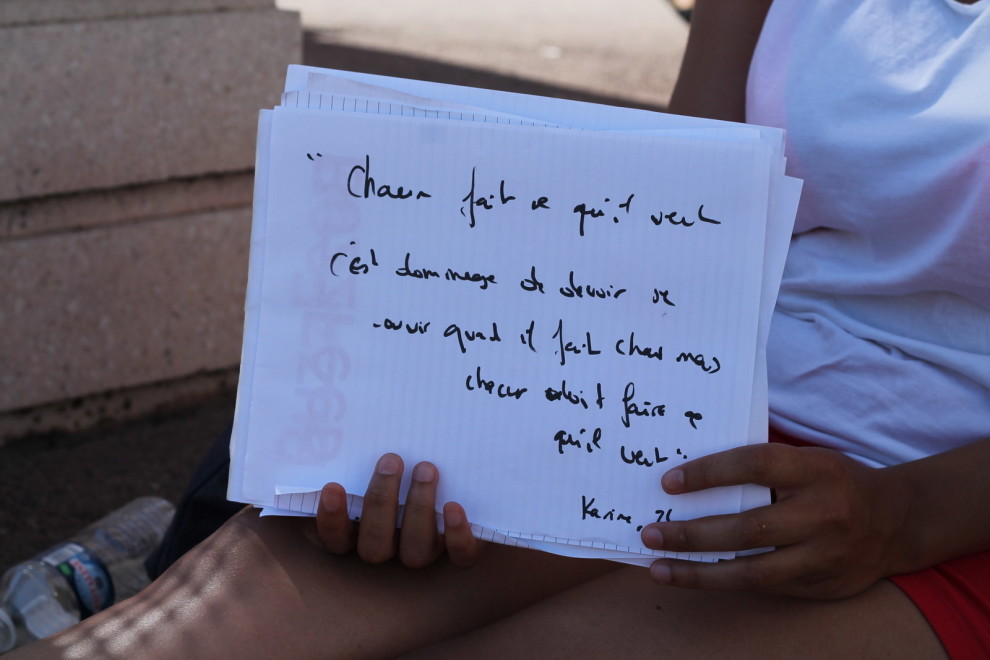 " Chacun fait ce qu'il veut
C'est dommage de devoir se
couvrir quand il fait chaud mais
chacun doit faire ce
qu'il veut "
Karine,